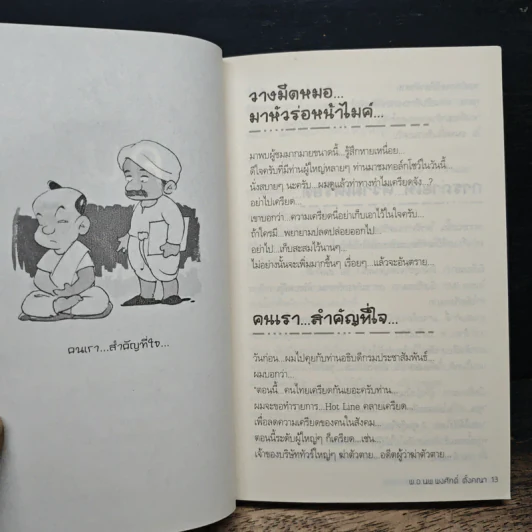 คนเรา...สำคัญที่ใจ...
วางมีดหมอ...
มาหัวร่อหน้าไมค์...
มาพบผู้ชมมากมายขนาดนี้...รู้สึกหายเหนื่อย...
ดีใจครับที่มีท่านผู้ใหญ่หลายๆ ท่านมาชมทอล์กโชว์ในวันนี้
นั่งสบายๆ นะครับ...ผมดูแล้วท่าทางทำไมเครียดจัง...?
อย่าไปเครียด...
เขาบอกว่า...ความเครียดนี่อย่าเก็บเอาไว้ในใจครับ...
ถ้าใครมี...พยายามปลดปล่อยออกไป...
อย่าไป...เก็บสะสมไว้นานๆ...
ไม่อย่างนั้นจะเพิ่มมากขึ้นๆ เรื่อยๆ...แล้วจะอันตราย...
คนเรา...สำคัญที่ใจ...
วันก่อน...ผมไปคุยกับท่านอธิบดีกรมประชาสัมพันธ์...
ผมบอกว่า...
"ตอนนี้...คนไทยเครียดกันเยอะครับท่าน...
ผมจะขอทำรายการ...Hot Line คลายเครียด...
เพื่อลดความเครียดของคนในสังคม...
ตอนนี้ระดับผู้ใหญ่ๆ ก็เครียด...เช่น...
เจ้าของบริษัททัวร์ใหญ่ๆ ฆ่าตัวตาย...อดีตผู้ว่าฆ่าตัวตาย...
พ.อ.นพ.พงศักดิ์ ตั้งคณา 13